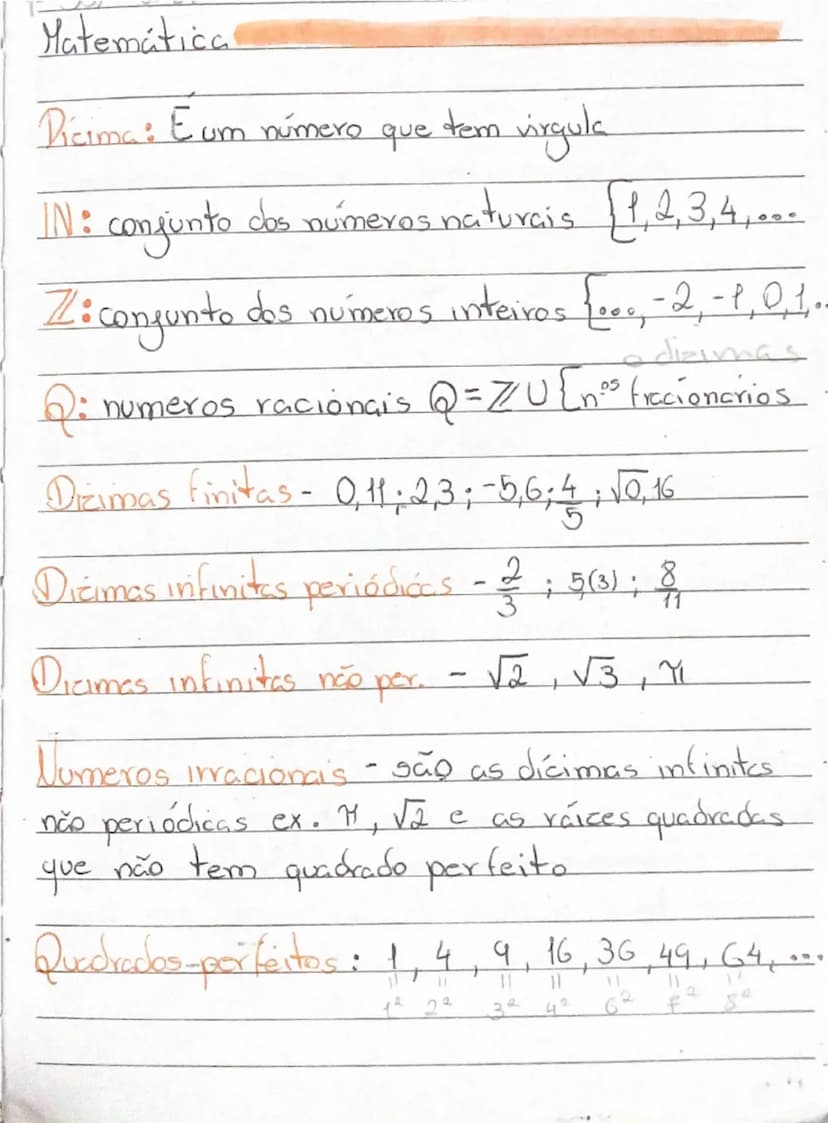 Matemática
Dícima: É um número que tem vírgula
IN: conjunto dos números naturais {1, 2, 3, 4, ...
Z: conjunto dos números inteiros {..., -2, -1, 0, 1, ..
o dizimas
Q: numeros racionais Q = Z U {nºs fraccionários
Dízimas finitas - 0,11 ; 2,3 ; -5,6 ; 4/5 ; √0,16
Dícimas infinitas periódicas - 2/3 ; 5,(3) ; 8/11
Dícimas infinitas não per. - √2 , √3 , π
Numeros irracionais - são as dícimas infinitas
não periódicas ex. π, √2 e as ráíces quadradas
que não tem quadrado perfeito
Quadrados perfeitos : 1, 4, 9, 16, 36, 49, 64, ...
1² 2² 3² 4² 6² 7² 8²